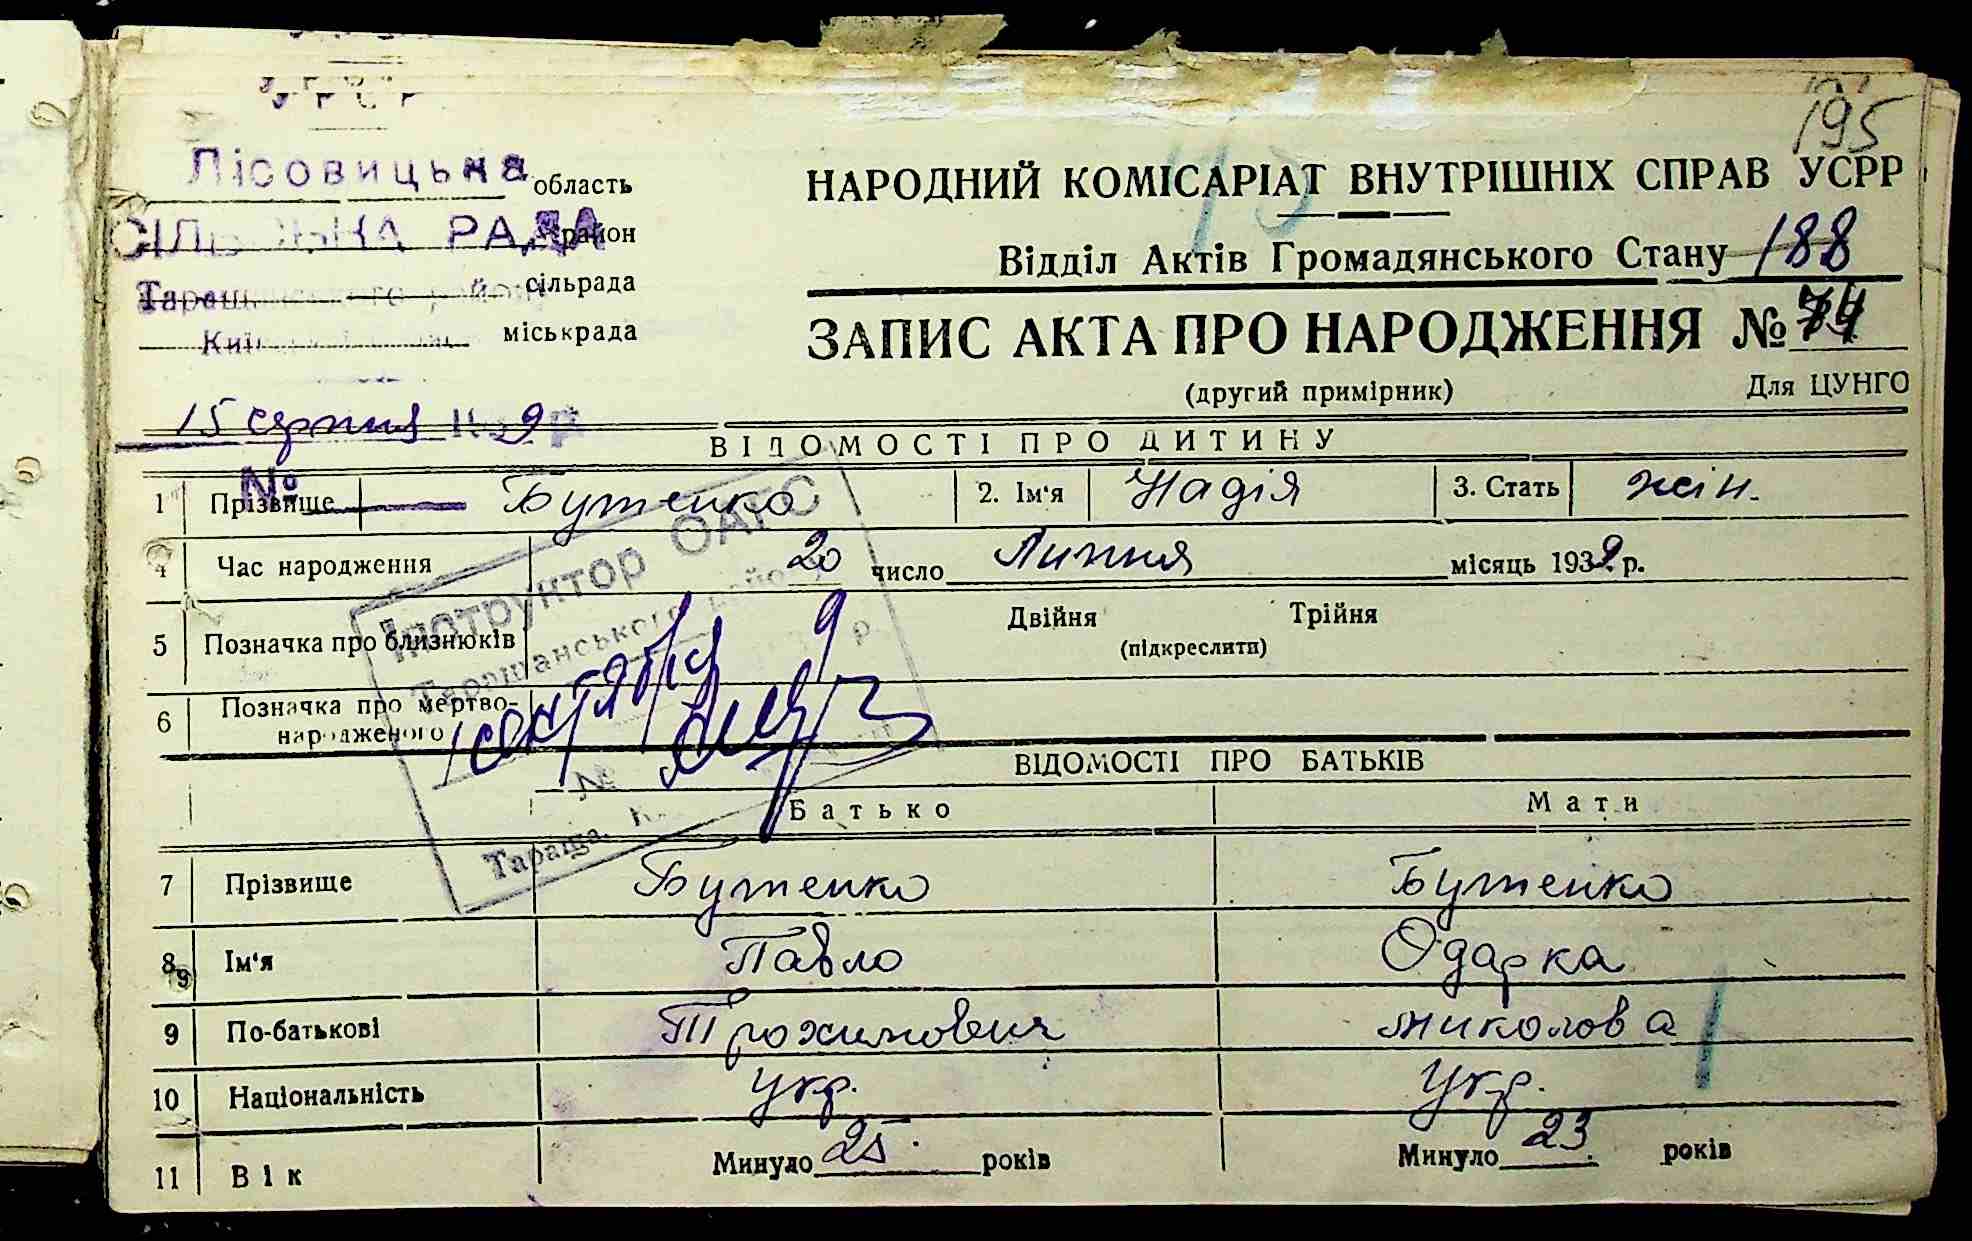 УРСР
195
Лісовицька область
СІЛЬСЬКА РАДА район
Таращанського району сільрада
міськрада
НАРОДНИЙ КОМІСАРІАТ ВНУТРІШНІХ СПРАВ УСРР
Відділ Актів Громадянського Стану 188
ЗАПИС АКТА ПРО НАРОДЖЕННЯ № 74
(другий примірник) Для ЦУНГО
15 серпня 9 р
ВІДОМОСТІ ПРО ДИТИНУ
№
1 Прізвище Бутенко 2. Ім'я Надія 3. Стать жін.
4 Час народження 20 число Липня місяць 1939 р.
Інструктор ОАГС
Таращанського району
5 Позначка про близнюків Двійня Трійня
(підкреслити)
6 Позначка про мертво-
народженого
1 сентября 9 р.
№
Тараща,
ВІДОМОСТІ ПРО БАТЬКІВ
Батько Мати
7 Прізвище Бутенко Бутенко
8 Ім'я Павло Одарка
9
9 По-батькові Трохимович Миколова
10 Національність Укр. Укр.
11 Вік Минуло 25 років Минуло 23 років